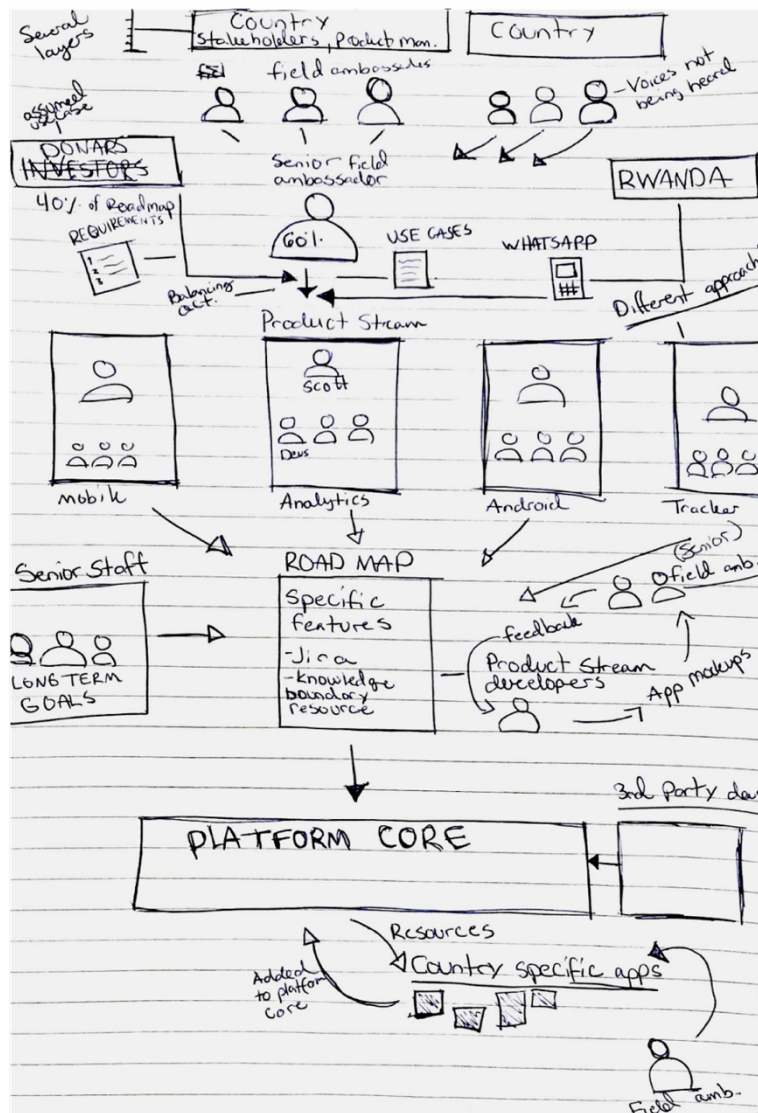 Several
layers
Country
Stakeholders, product man.
Country
field ambassades
Voices not
being heard
assumed
use case
DONARS
INVESTORS
Senior field
ambassador
RWANDA
40% of Roadmap
REQUIREMENTS
1
2
3
60%
USE CASES
WHATSAPP
Balancing
act.
Different approach
Product Stream
Scott
Devs
mobile
Analytics
Android
Tracker
Senior Staff
LONG TERM
GOALS
ROAD MAP
Specific
features
-Jira
-knowledge
boundary
resource
(Senior)
field amb.
feedback
Product Stream
developers
App mockups
3rd Party dev
PLATFORM CORE
Resources
Added
to platform
core
Country specific apps
Field amb.